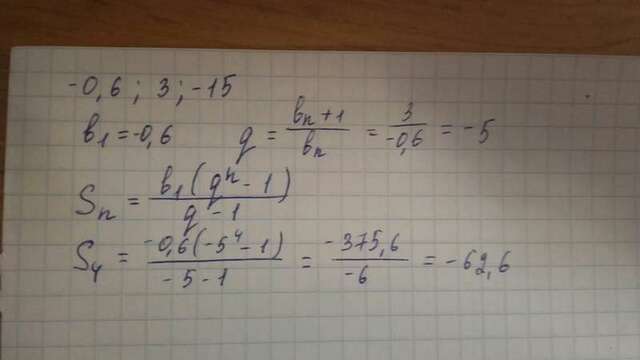 -0,6 ; 3 ; -15
b₁ = -0,6 q = bₙ+1 / bₙ = 3 / -0,6 = -5
Sₙ = b₁(qⁿ - 1) / q - 1
S₄ = -0,6(-5⁴ - 1) / -5 - 1 = -375,6 / -6 = -62,6